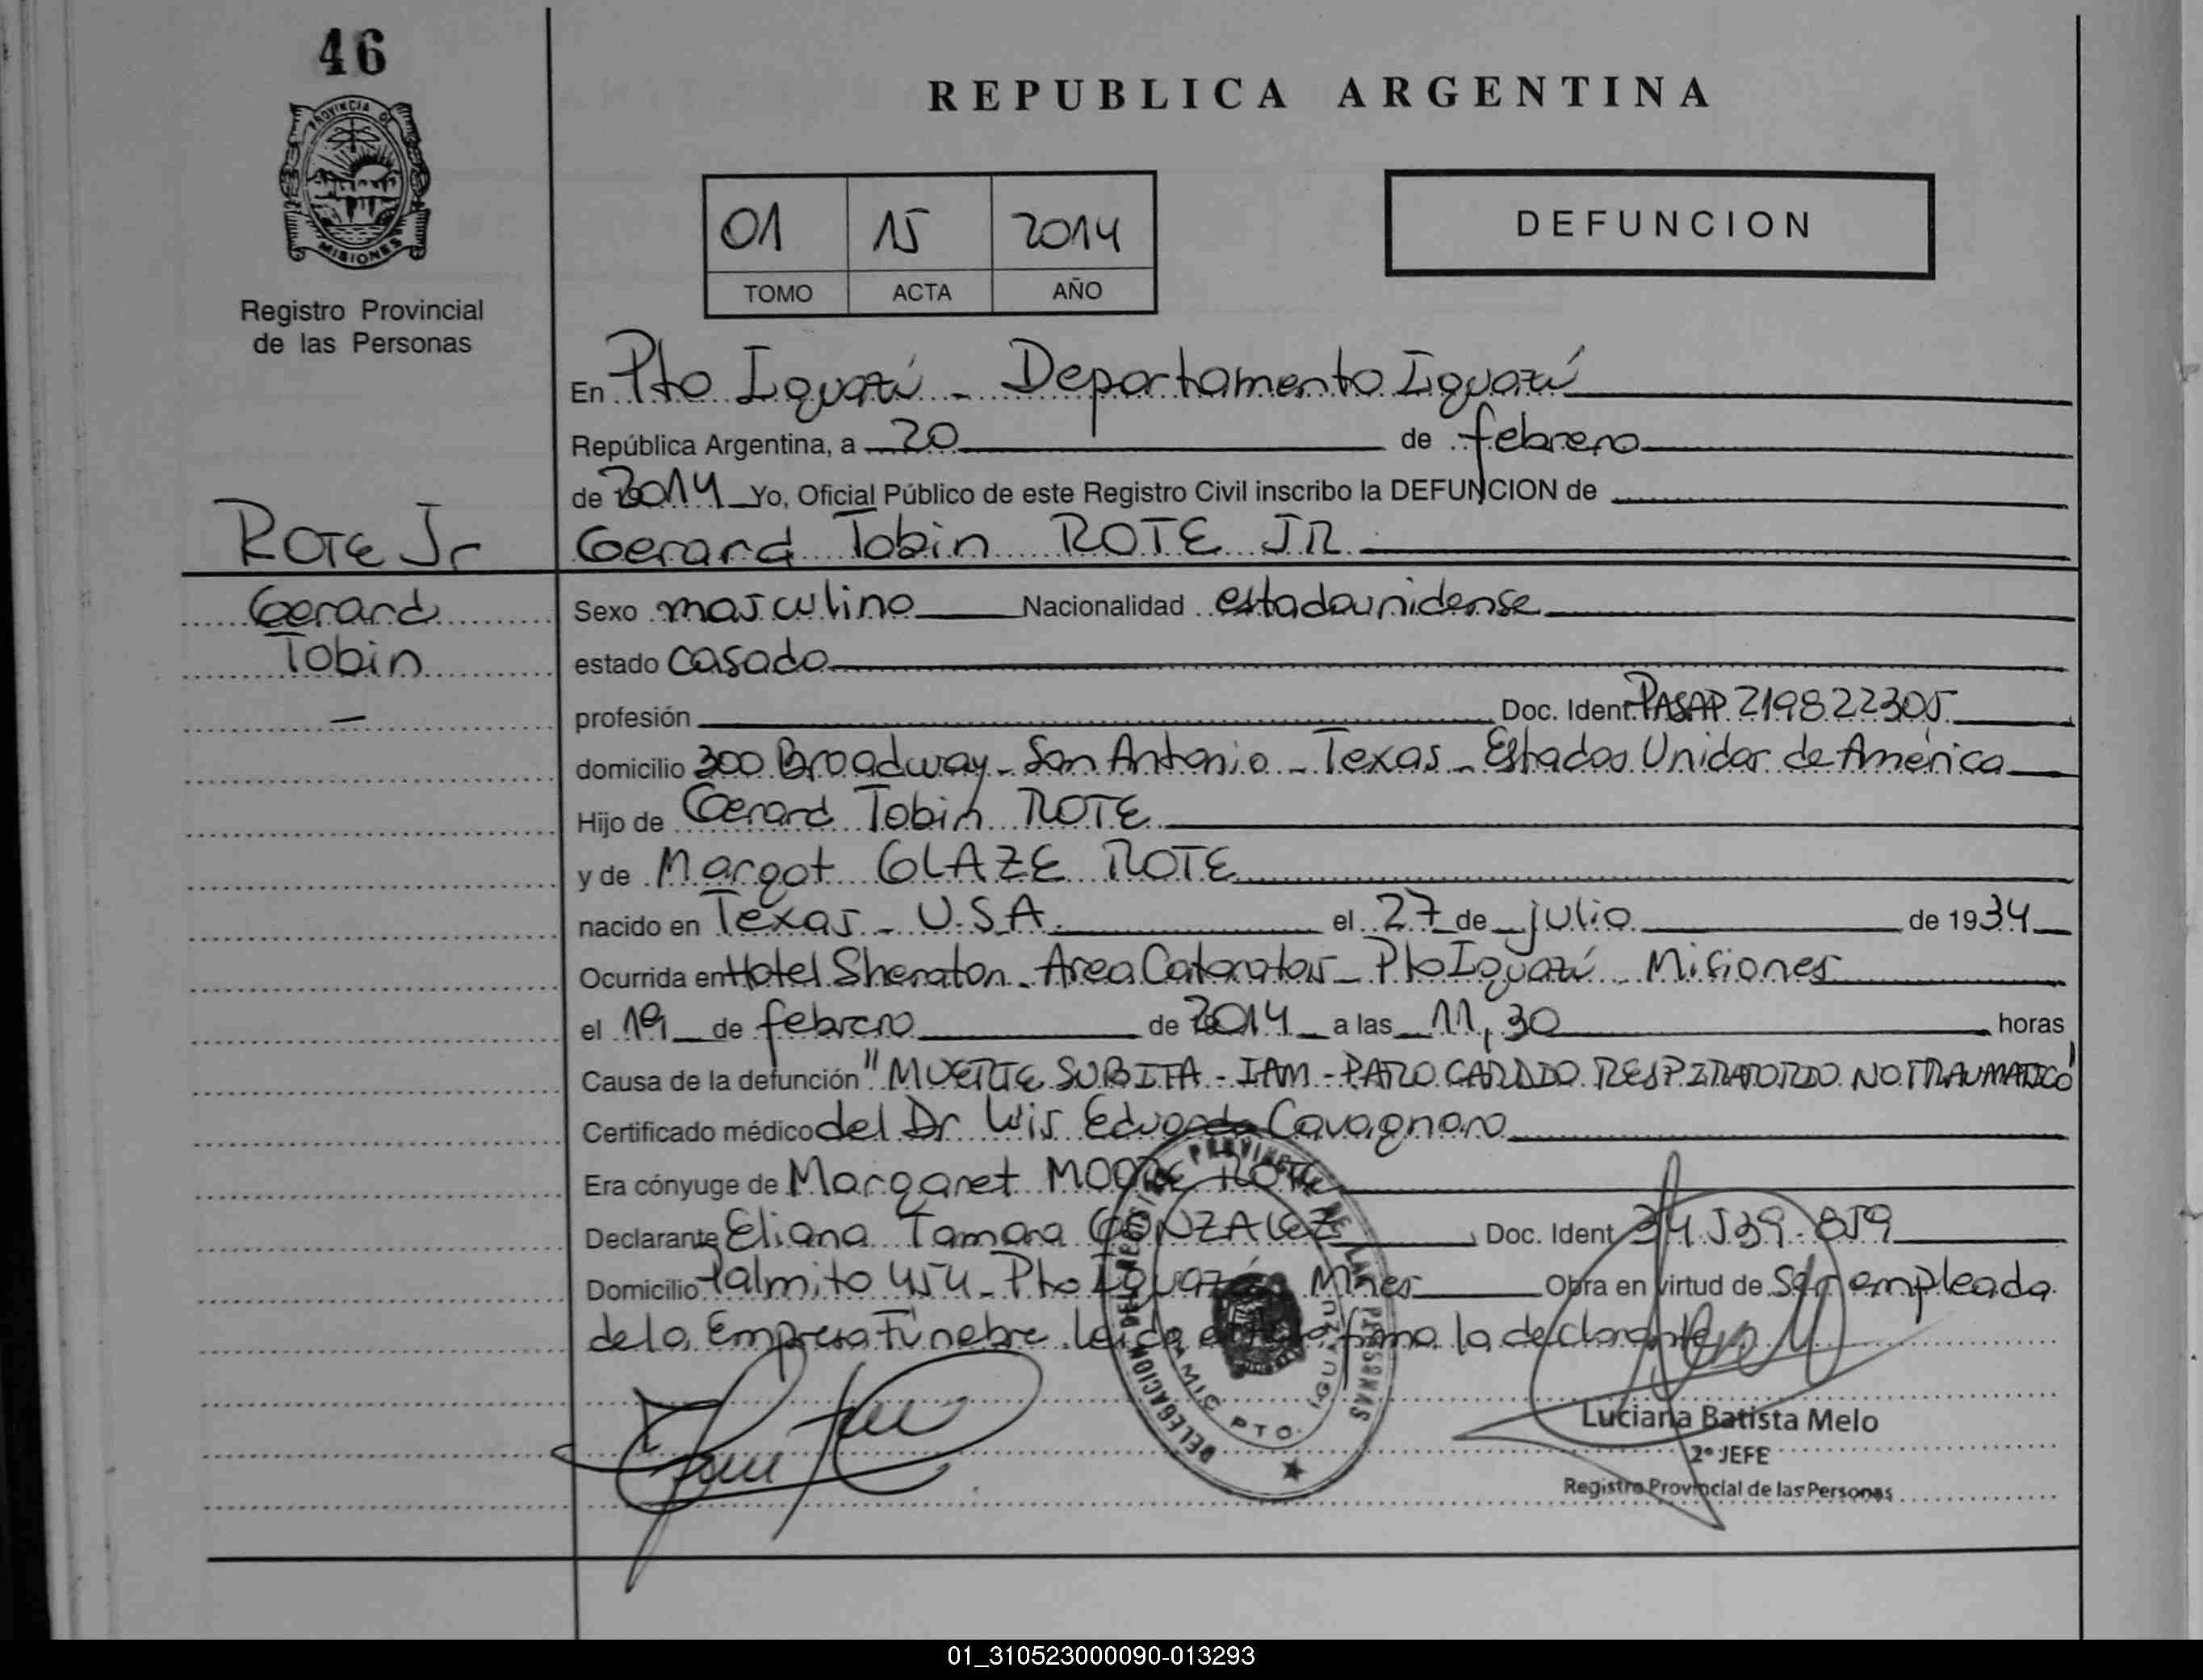 46
REPUBLICA ARGENTINA
PROVINCIA DE
MISIONES
Registro Provincial
de las Personas
01 15 2014
TOMO ACTA AÑO
DEFUNCION
En Pto Iguazú - Departamento Iguazú
República Argentina, a 20 de febrero
de 2014 Yo, Oficial Público de este Registro Civil inscribo la DEFUNCION de
ROTE Jr
Gerard Tobin ROTE JR.
Gerard
Tobin
Sexo masculino Nacionalidad estadounidense
estado casado
profesión Doc. Ident. PASAP 219822305
domicilio 300 Broadway - San Antonio - Texas - Estados Unidos de América
Hijo de Gerard Tobin ROTE
y de Margot GLAZE ROTE
nacido en Texas - U.S.A. el 27 de julio de 1934
Ocurrida en Hotel Sheraton - Area Cataratas - Pto Iguazú - Misiones
el 19 de febrero de 2014 a las 11,30 horas
Causa de la defunción "MUERTE SUBITA - IAM - PARO CARDIO RESPIRATORIO NO TRAUMATICO"
Certificado médico del Dr Luis Eduardo Cavagnaro
Era cónyuge de Margaret MOORE ROTE
Declarante Eliana Tamara GONZALEZ Doc. Ident 34.539.859
Domicilio Palmito 454 - Pto Iguazú Mnes Obra en virtud de Ser empleada
de la Empresa Fúnebre. Leída el acta firma la declarante
DELEGACION DEL REGISTRO PROVINCIAL DE LAS PERSONAS
PTO. IGUAZU
Luciana Batista Melo
2º JEFE
Registro Provincial de las Personas
01_310523000090-013293